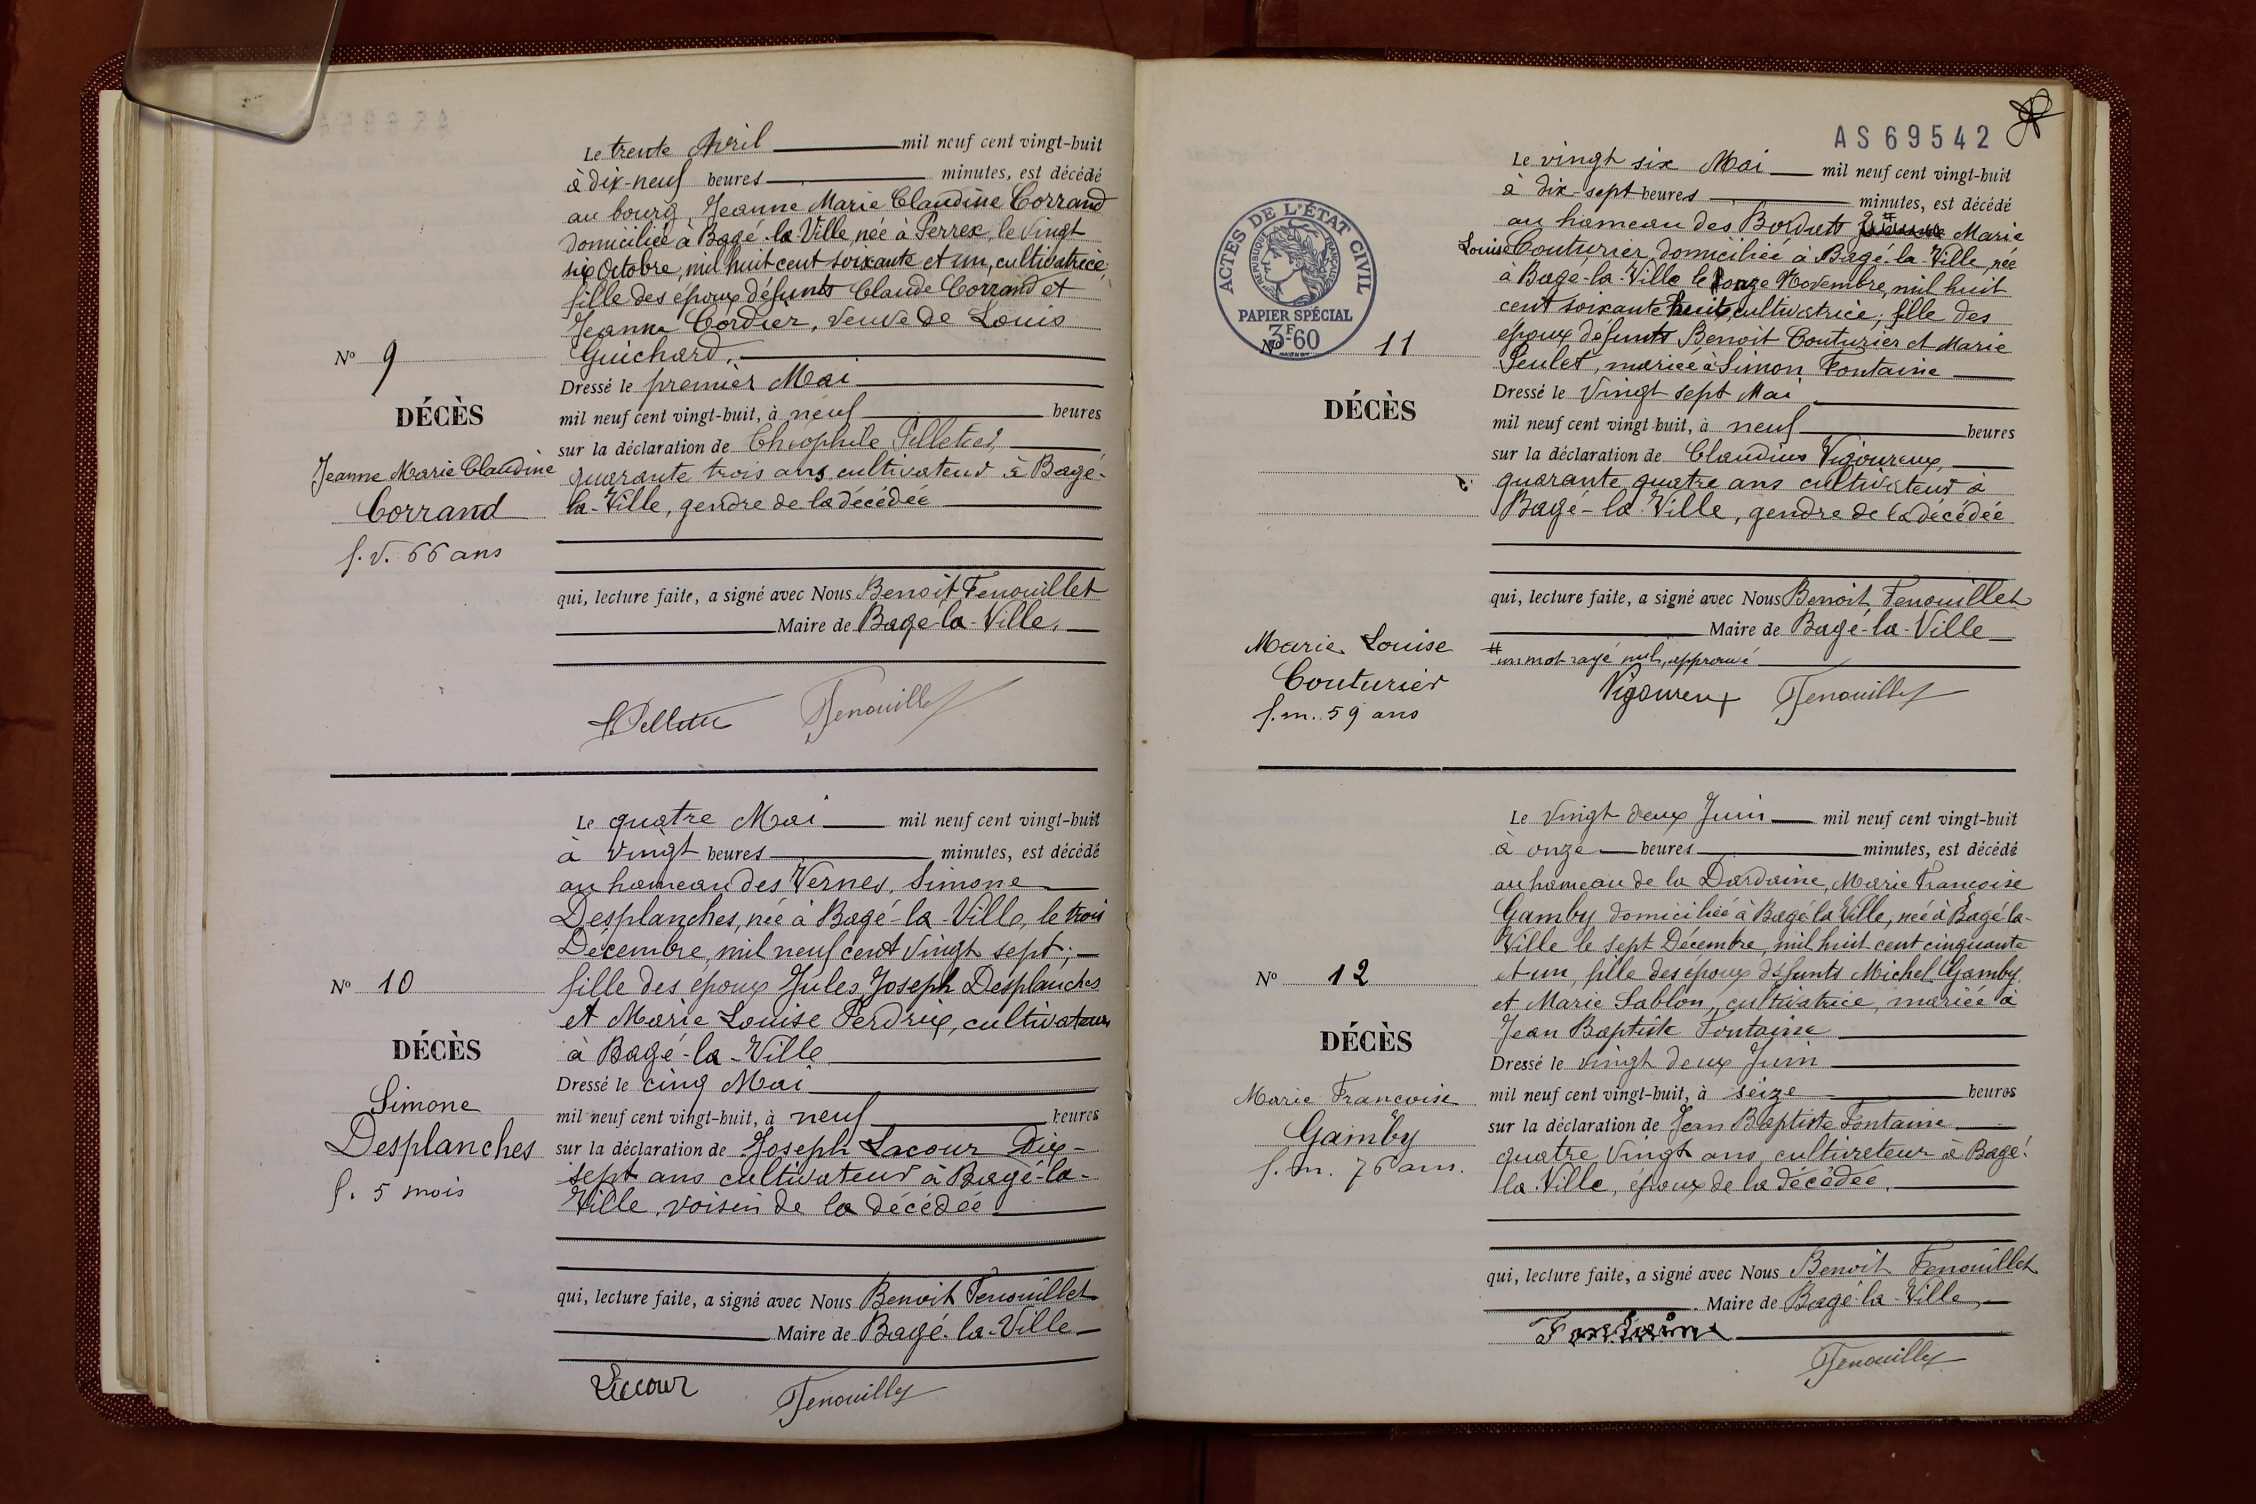 Le trente Avril mil neuf cent vingt-huit
à dix-neuf heures minutes, est décédé
au bourg, Jeanne Marie Claudine Corrand
domiciliée à Bagé-la-Ville, née à Perrex, le vingt
six Octobre, mil huit cent soixante et un, cultivatrice;
fille des époux défunts Claude Corrand et
Jeanne Cordier, veuve de Louis
Guichard.
Dressé le premier Mai
mil neuf cent vingt-huit, à neuf heures
sur la déclaration de Théophile Pelletier,
quarante trois ans cultivateur à Bagé-
la-Ville, gendre de la décédée
qui, lecture faite, a signé avec Nous Benoît Fenouillet
Maire de Bagé-la-Ville.
Fenouillet
No 9
DÉCÈS
Jeanne Marie Claudine
Corrand
f. v. 66 ans
Le quatre Mai mil neuf cent vingt-huit
à vingt heures minutes, est décédé
au hameau des Vernes, Simone
Desplanches, née à Bagé-la-Ville, le trois
Décembre, mil neuf cent vingt sept;
fille des époux Jules Joseph Desplanches
et Marie Louise Perdrix, cultivateurs
à Bagé-la-Ville
Dressé le cinq Mai
mil neuf cent vingt-huit, à neuf heures
sur la déclaration de Joseph Lacour Dix-
sept ans cultivateur à Bagé-la-
Ville, voisin de la décédée
qui, lecture faite, a signé avec Nous Benoît Fenouillet
Maire de Bagé-la-Ville
Lacour Fenouillet
No 10
DÉCÈS
Simone
Desplanches
f. 5 mois
AS 69542
ACTES DE L'ÉTAT CIVIL
RÉPUBLIQUE FRANÇAISE
PAPIER SPÉCIAL
3F60
Le vingt six Mai mil neuf cent vingt-huit
à dix-sept heures minutes, est décédé
au hameau des Bordets # Marie
Louise Couturier, domiciliée à Bagé-la-Ville, née
à Bagé-la-Ville le onze Novembre, mil huit
cent soixante huit, cultivatrice; fille des
époux défunts Benoît Couturier et Marie
Peulet, mariée à Simon Fontaine
Dressé le Vingt sept Mai
mil neuf cent vingt-huit, à neuf heures
sur la déclaration de Claudius Vigoureux,
quarante quatre ans cultivateur à
Bagé-la-Ville, gendre de la décédée
qui, lecture faite, a signé avec Nous Benoît Fenouillet
Maire de Bagé-la-Ville
# un mot rayé nul, approuvé
Vigoureux Fenouillet
No 11
DÉCÈS
Marie Louise
Couturier
f. m. 59 ans
Le Vingt deux Juin mil neuf cent vingt-huit
à onze heures minutes, est décédé
au hameau de la Dardaine, Marie Françoise
Gamby domiciliée à Bagé la Ville, née à Bagé la-
Ville le sept Décembre, mil huit cent cinquante
et un, fille des époux défunts Michel Gamby
et Marie Sablon, cultivatrice, mariée à
Jean Baptiste Fontaine
Dressé le vingt deux Juin
mil neuf cent vingt-huit, à seize heures
sur la déclaration de Jean Baptiste Fontaine
quatre Vingt ans cultivateur à Bagé-
la Ville, époux de la décédée.
qui, lecture faite, a signé avec Nous Benoît Fenouillet
Maire de Bagé-la-Ville
Fontaine
Fenouillet
No 12
DÉCÈS
Marie Francoise
Gamby
f. m. 76 ans.